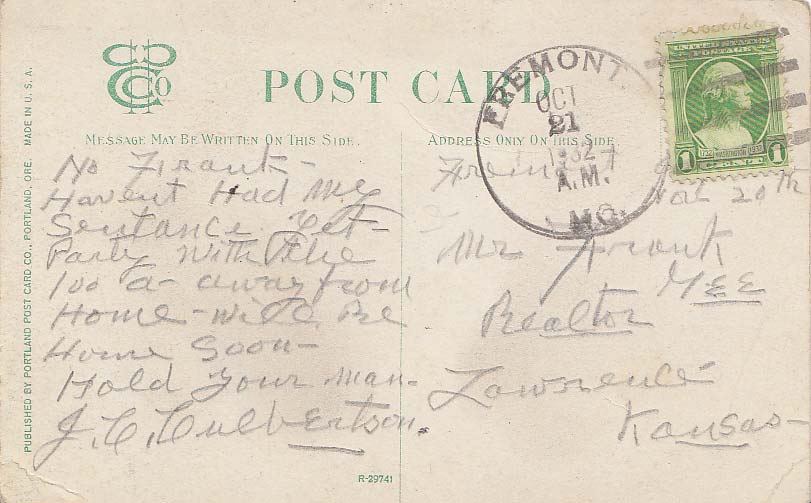 POST CARD
MESSAGE MAY BE WRITTEN ON THIS SIDE.
ADDRESS ONLY ON THIS SIDE
PUBLISHED BY PORTLAND POST CARD CO., PORTLAND, ORE. MADE IN U. S. A.
FREMONT.
OCT
21
1932
A.M.
MO.
UNITED STATES POSTAGE
1 1732 WASHINGTON 1932 1
CENT
No Frank -
Havent Had My
Sentance Yet -
Party With the
100 a- away from
Home - will Be
Home Soon -
Hold Your Man -
J. C. Culbertson.
Fremont
20th
Mr Frank
GEE
Realtor
Lawrence
Kansas -
R-29741